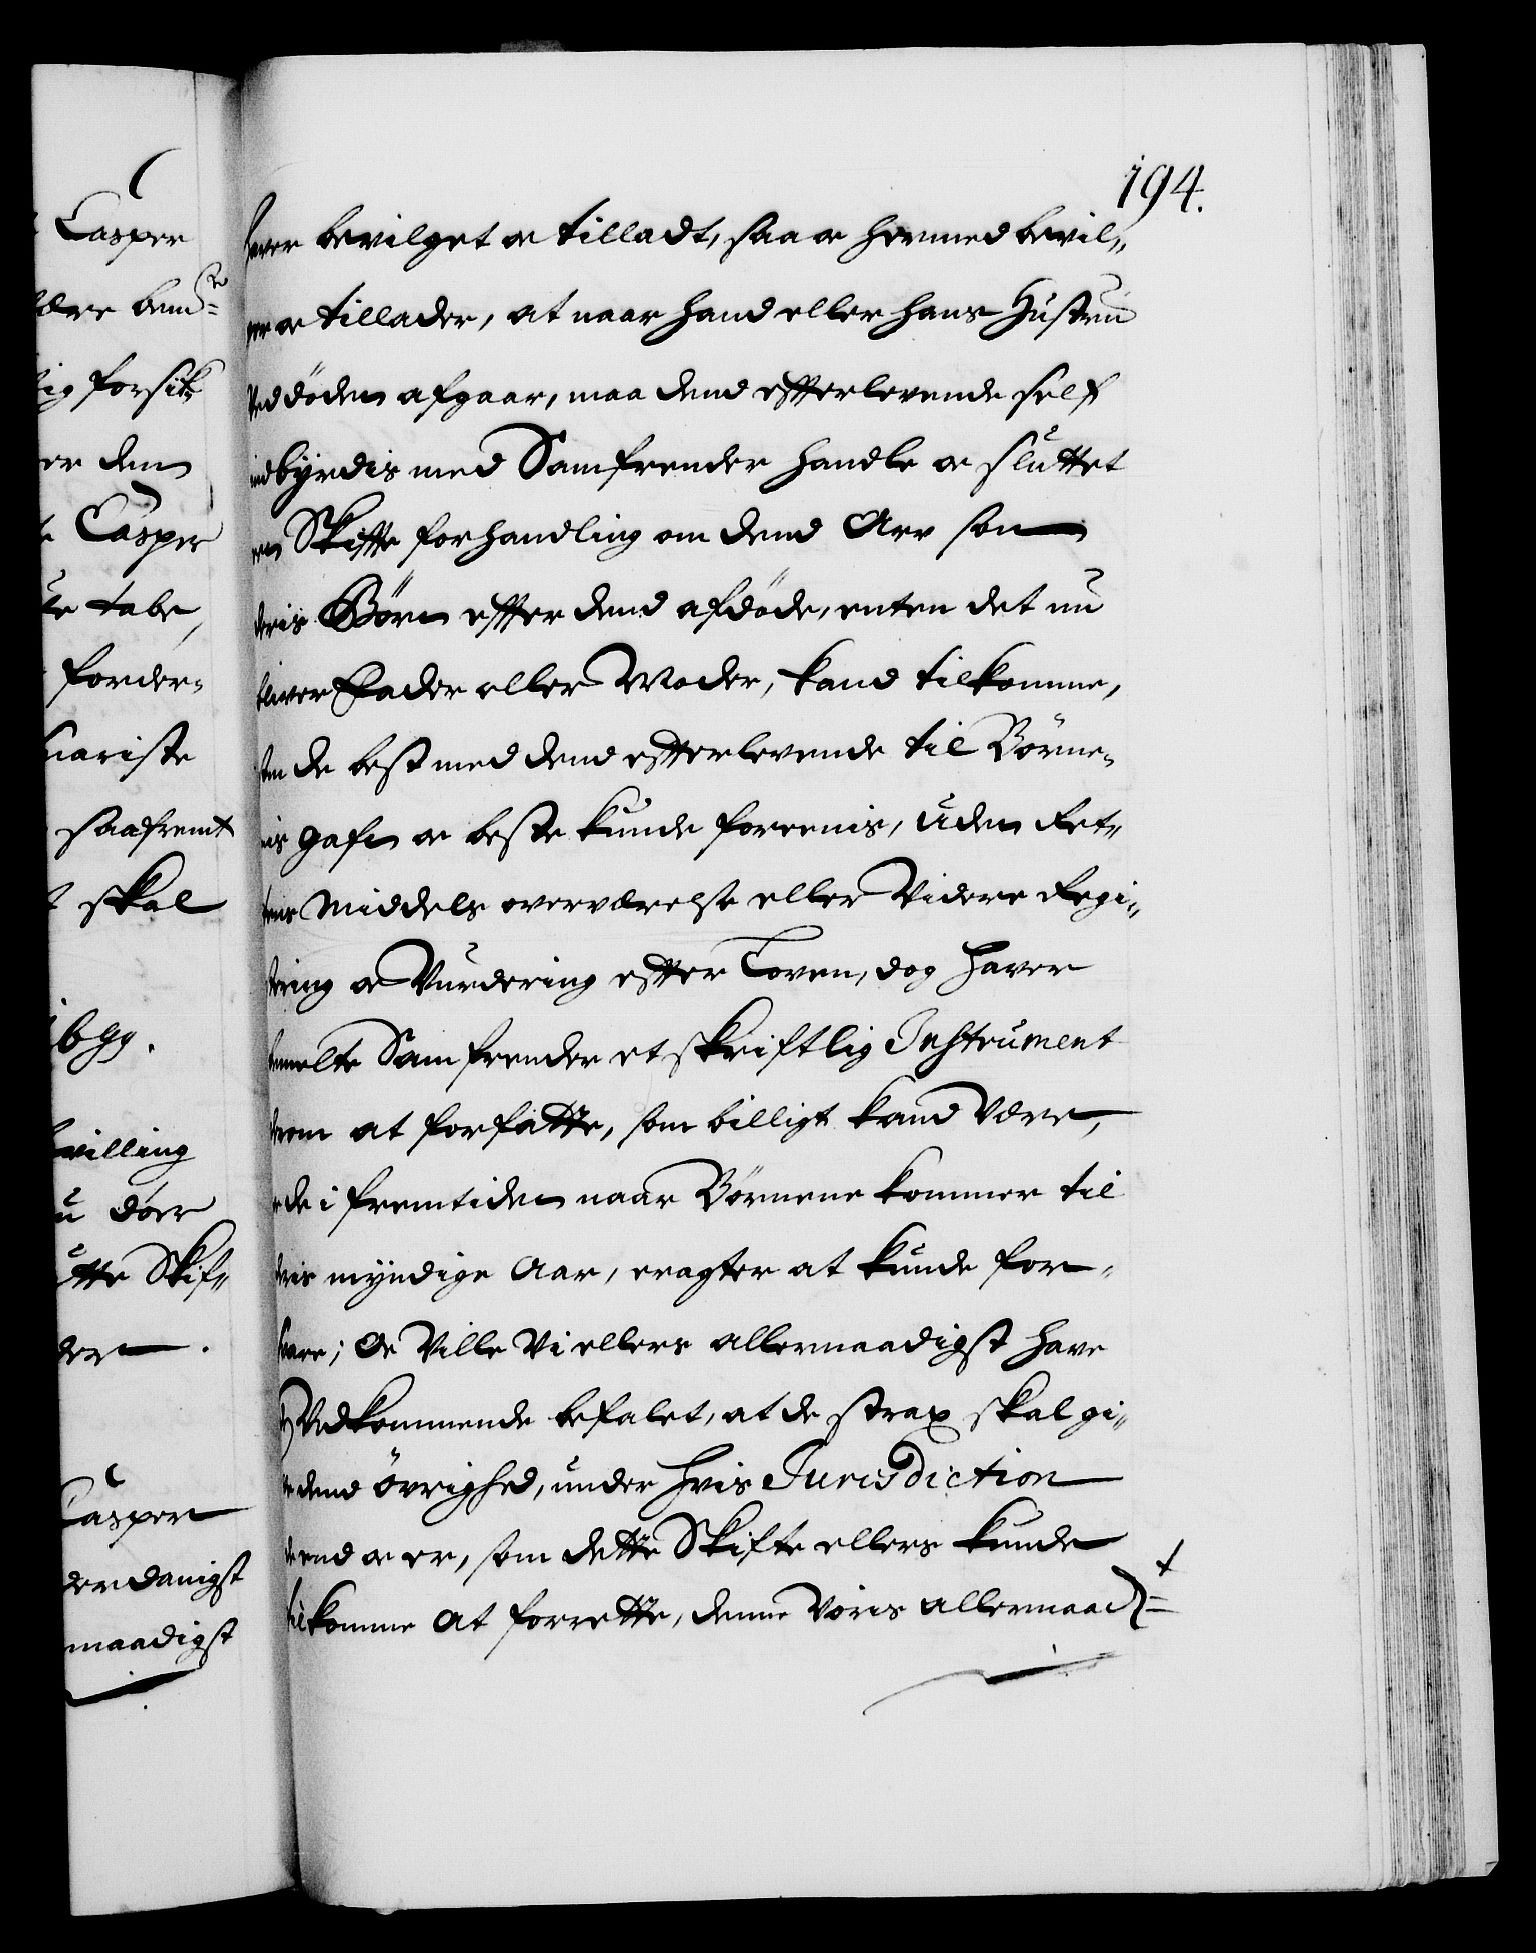 194.
haver bevilget oc tilladt, saa oc hermed bevil,,
ger oc tillader, at naar hand eller hans Hustru
Ved döden afgaar, maa dend efterlevende self
indbÿrdis med Samfrender handle oc sluttet
en Skifte forhandling om dend Arv som
deris Börn efter dend afdöde, enten det nu
bliver Fader eller Moder, kand tilkomme,
som de best med dend efterlevende til Börne-
nis gafn oc beste kunde foreenis, uden Ret,,
tens Middels overværelse eller Videre Regi,,
stering oc Vurdering efter Loven, dog haver
bemelte Samfrender et skriftlig Instrument
derom at forfatte, som billigt kand være,
oc de i fremtiden naar Börnene kommer til
deris mÿndige Aar, eragter at kunde for-
svare; Oc Ville Vi ellers allernaadigst have
Vedkommende befalet, at de strax skal gi,,
ve dend övrighed, under hvis Jurisdiction
dend oc er, som dette Skifte ellers kunde
tilkomme at forrette, denne Voris allernaad
Casper
være bem
forsik
er den
Casper
tabe,
forder-
saafremt
skal
villing
döer
Skif,,
Casper
derdanigst
naadigst